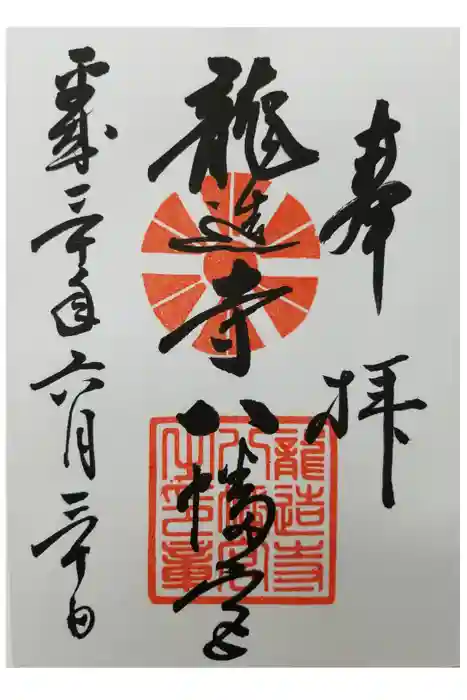 奉拝
龍造寺八幡宮
平成三十年六月三十日
龍造寺
八幡宮